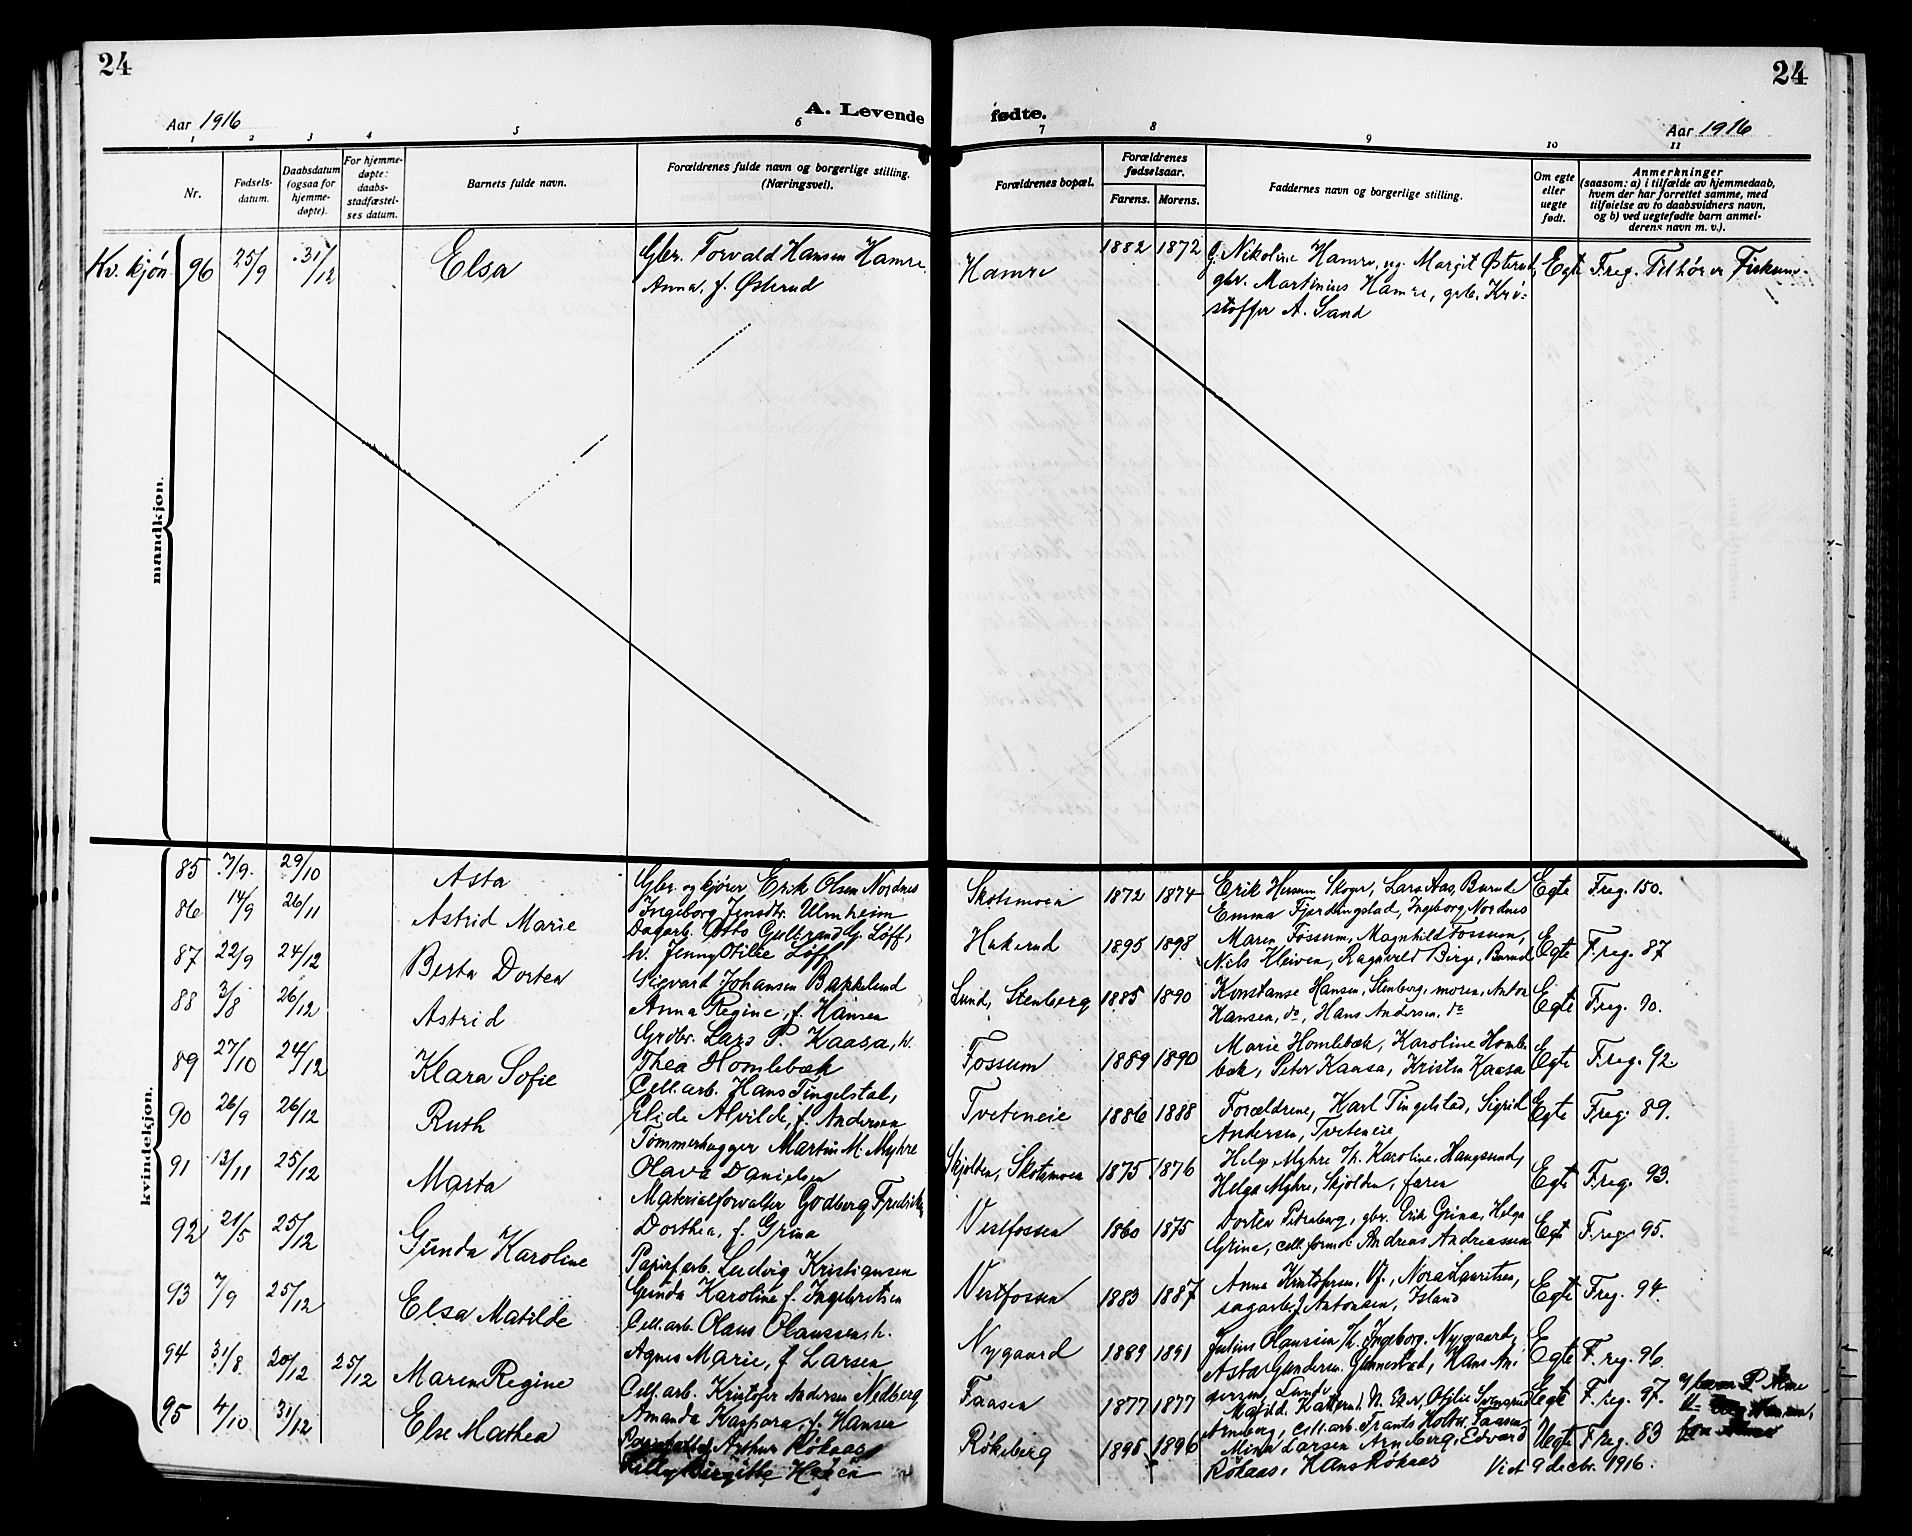 24
24
Aar 1916
A. Levende
fødte.
Aar 1916
1 2 3 4 5 6 7 8 9 10 11
Nr.
Fødsels-
datum.
Daabsdatum
(ogsaa for
hjemme-
døpte).
For hjemme-
døpte:
daabs-
stadfæstel-
ses datum.
Barnets fulde navn.
Forældrenes fulde navn og borgerlige stilling.
(Næringsvei).
Forældrenes bopæl.
Forældrenes
fødselsaar.
Farens. Morens.
Faddernes navn og borgerlige stilling.
Om egte
eller
uegte
født.
Anmerkninger
(saasom: a) i tilfælde av hjemmedaab,
hvem der har forrettet samme, med
tilføielse av to daabsvidners navn,
og b) ved uegtefødte barn anmel-
derens navn m. v.).
Kv. kjøn 96 25/9 31/12 Elsa Gbr. Torvald Hansen Hamre Hamre 1882 1872 Nikoline Hamre, ug. Margit Østerud, Egte F. reg. Tilhører Fiskum
Anna, f. Østerud gbr. Martinius Hamre, grb. Kri-
stoffer A. Sand
mandkjøn.
kvindekjøn.
85 7/9 29/10 Asta Gbr. og kjører Erik Olsen Nordnes Skotsmoen 1872 1874 Erik Skoger, Lars Aas, Egte F. reg. 150.
Ingeborg Jensdtr. Ulmheim Emma Fjerdingstad, Ingeborg Nordnes
86 14/9 26/11 Astrid Marie Dagarb. Otto Gulbrand G. Løff, Hakerud 1895 1898 Maren Fossum, Magnhild Fossum, Egte F. reg. 87
h. Jenny Otilie Løff Nils Kleiven, Ragnvald Birge,
87 22/9 24/12 Berta Dortea Sigvard Johansen Bakkelund Lund, Stenberg 1885 1890 Konstanse Hansen, Stenberg, moren, Anton Egte F. reg. 90.
Anna Regine, f. Hansen Hansen, do, Hans Andersen, do
88 3/8 26/12 Astrid Grdbr. Lars P. Kaasa, h. Fossum 1889 1890 Marie Homlebæk, Karoline Homle- Egte F. reg. 92
Thea Homlebæk bæk, Peter Kaasa, Kristen Kaasa
89 27/10 24/12 Klara Sofie Cell. arb. Hans Tingelstad, Tveteneie 1886 1888 Forældrene, Karl Tingelstad, Sigrid Egte F. reg. 89.
Elide Alvilde, f. Andersen Andersen, Tveteneie
90 26/9 26/12 Ruth Tømmerhugger Martin M. Myhre Skjolden, Skotsmoen 1875 1876 Helge Myhre h. Karoline, Haugsund, Egte F. reg. 93.
Olava Danielsen Helga Myhre, Skjolden, faren
91 13/11 25/12 Marta Materialforvalter Godberg Fredriksen Vestfossen 1860 1875 Dortea, gbr. Erik Grina, Helga Egte F. reg. 95.
Dorthea, f. Grina Grina, cell. formd. Andreas Andreassen
92 21/5 25/12 Gunda Karoline Papirf. arb. Ludvig Kristiansen Vestfossen 1883 1887 Anna Kristofersen, Vf., Nora Lauritsen, Egte F. reg. 94.
Gunda Karoline f. Ingebretsen sagarb. J. Antonsen, Island
93 7/9 25/12 Elsa Matilde Cell. arb. Olaus Olaussen, h. Nygaard 1889 1891 Julius Olaussen h. Ingeborg, Nygaard, Egte F. reg. 96.
Agnes Marie, f. Larsen Asta Gundersen, Gunnestad, Hans An-
dersen, Lunde
94 31/8 20/12 25/12 Maren Regine Cell. arb. Kristofer Andersen Nedberg Faasen 1877 1877 Egte F. reg. 97.
Amanda Kaspara, f. Hansen Arneberg, cell. arb. Frants Holter, Faasen
95 4/10 31/12 Else Mathea Arthur Rökaas Rökeberg 1895 1896 Mina Larsen Arnberg, Edvard Uegte F. reg. 83
Lilly Birgitte Rökaas, Hans Rökaas Viet 9 decbr. 1916.